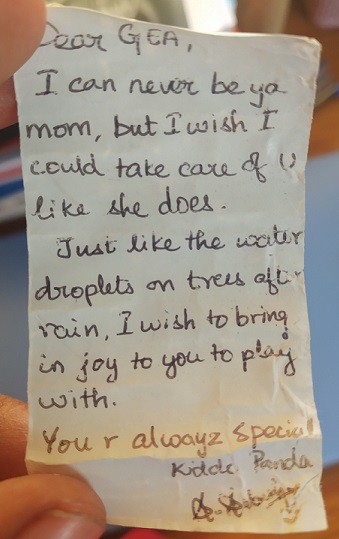 Dear GEA,
I can never be ya
mom, but I wish I
could take care of U
like she does.
Just like the water
droplets on trees after
rain, I wish to bring
in joy to you to play
with.
You r alwayz special
Kidde Panda